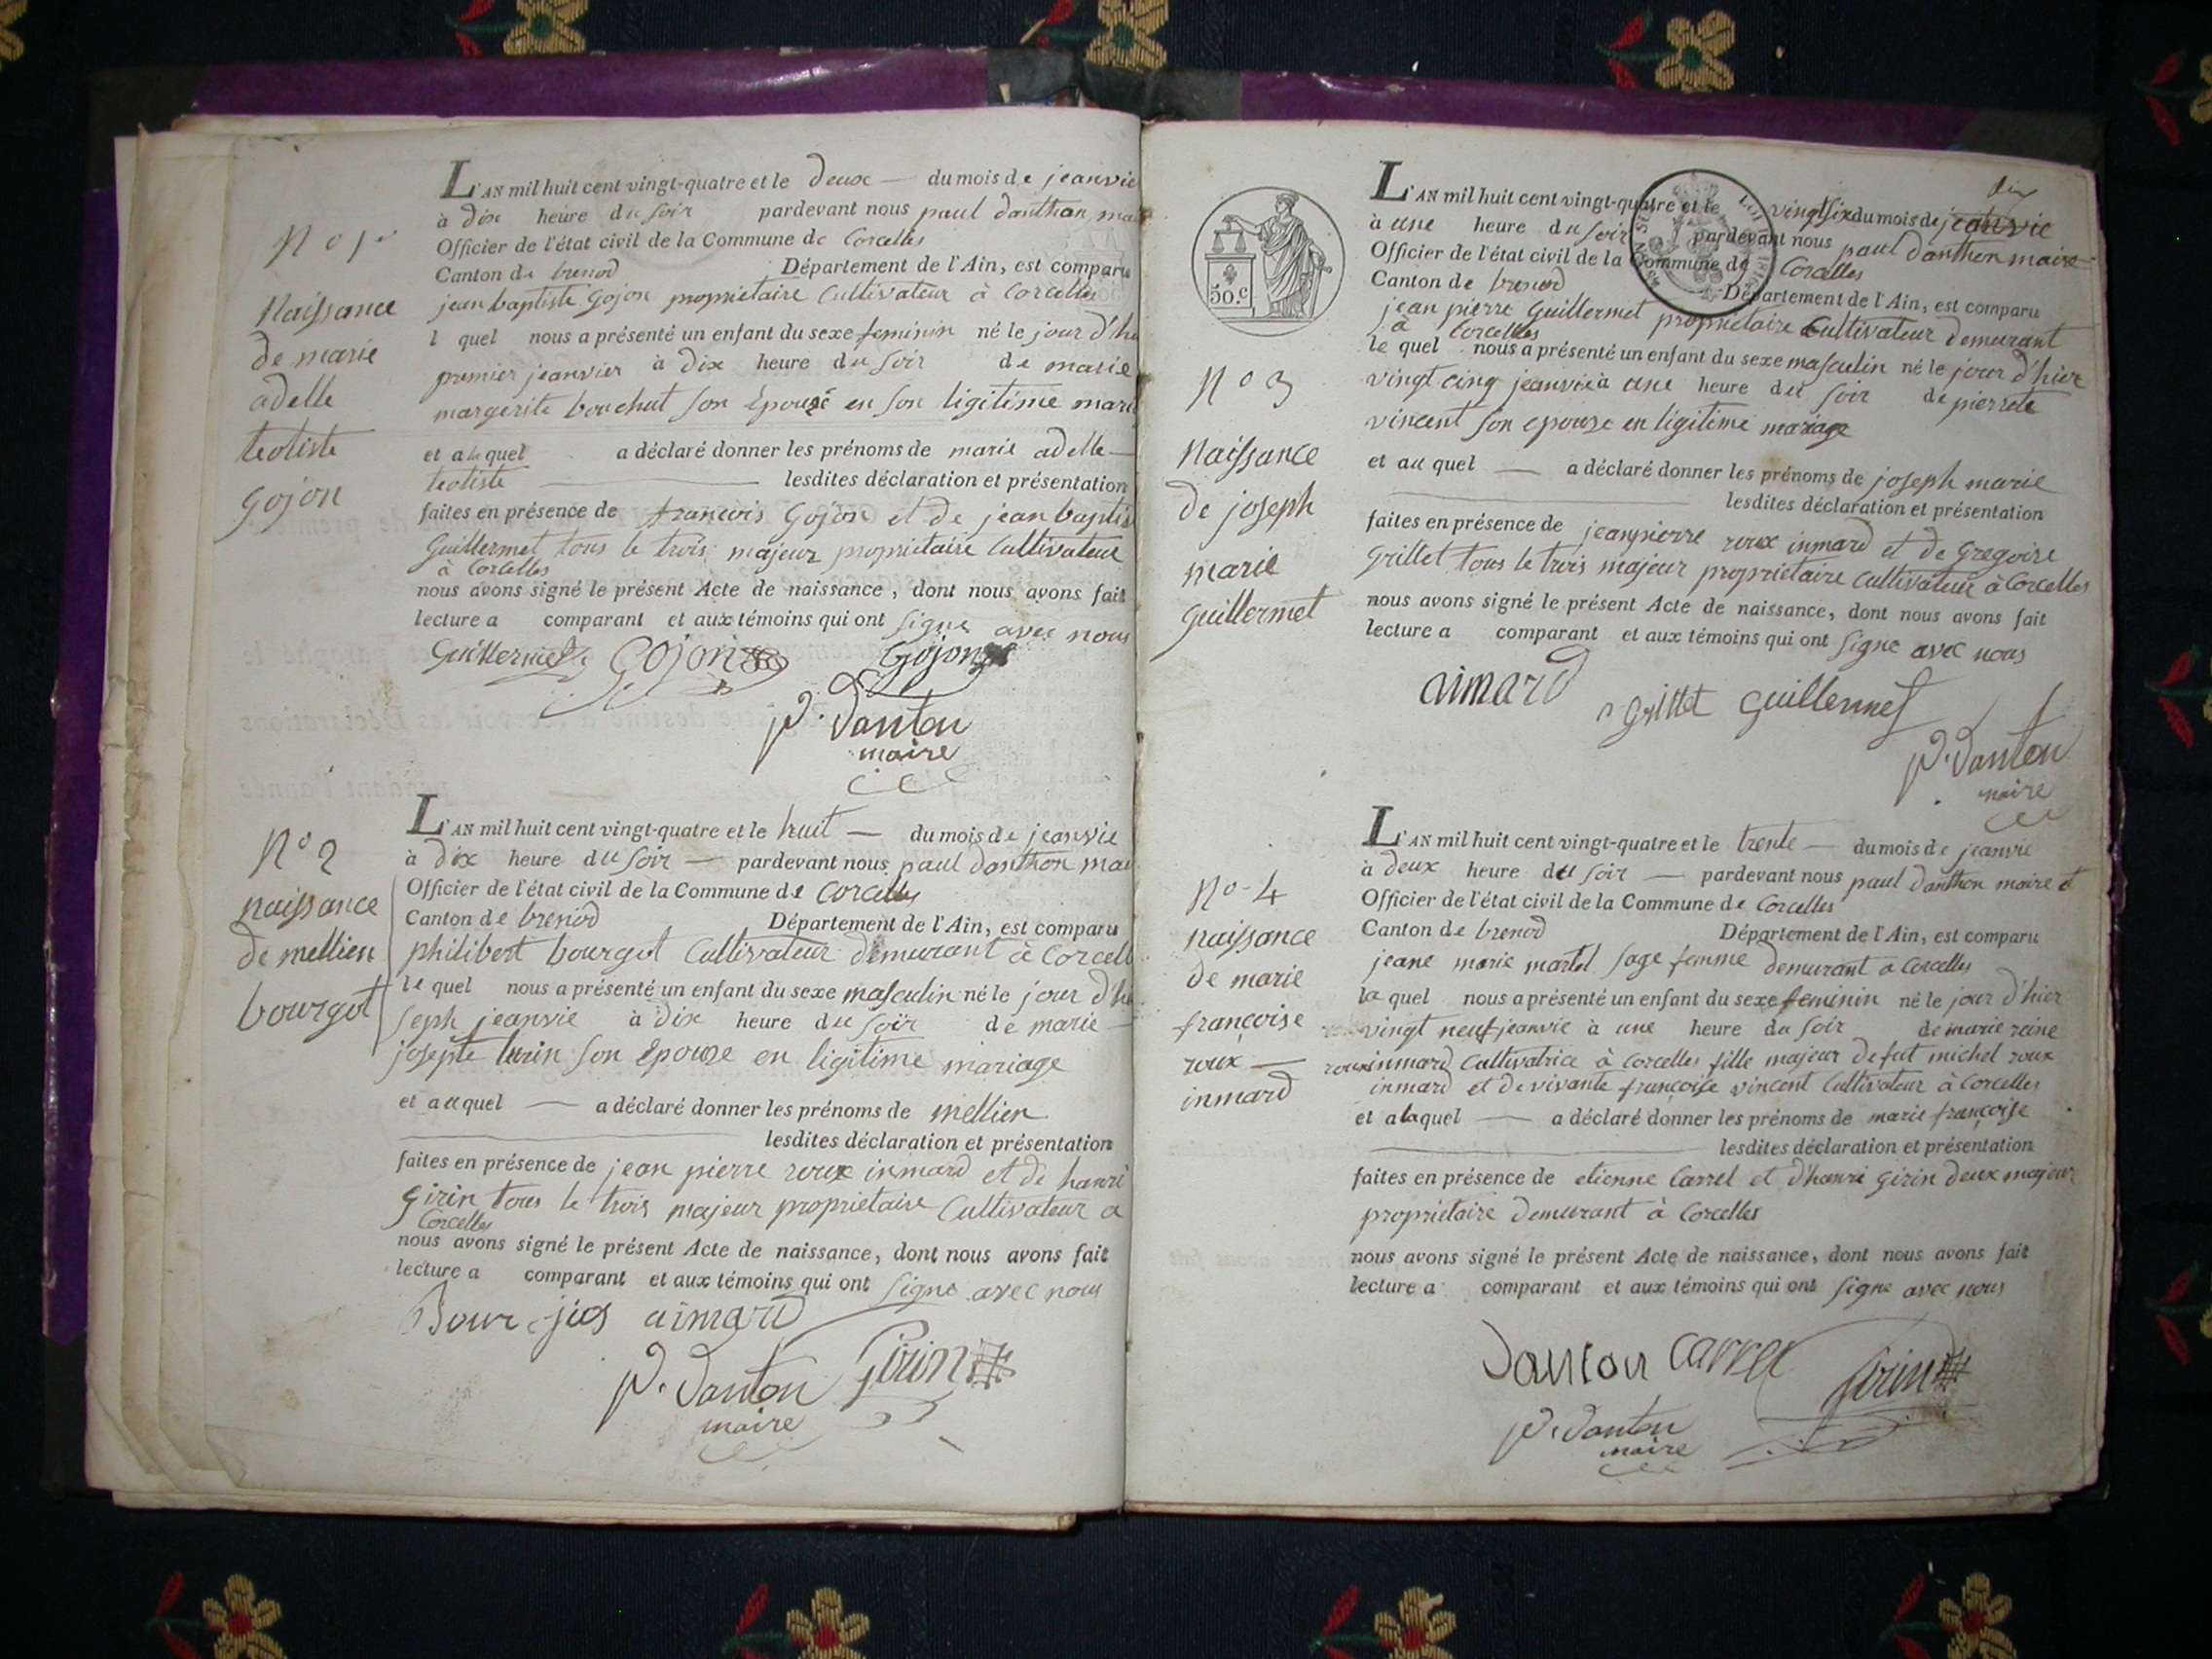 N° 1er
Naissance
de marie
adelle
teotiste
gojon
L'AN mil huit cent vingt-quatre et le deux — du mois de jeanvie
à dix heure du soir pardevant nous paul danthon mai
Officier de l'état civil de la Commune de Corcelles
Canton de brenod Département de l'Ain, est comparu
jean baptiste Gojon propriétaire Cultivateur à Corcelles
l quel nous a présenté un enfant du sexe feminin né le jour d'hi
premier jeanvier à dix heure du soir de marie
margerite bouchut son Epouse en son ligitime mari
et a la quel a déclaré donner les prénoms de marie adelle —
teotiste — lesdites déclaration et présentation
faites en présence de francois Gojon et de jean baptis
Guillermet tous le trois majeur propriétaire Cultivateur
à Corcelles
nous avons signé le présent Acte de naissance, dont nous avons fait
lecture a comparant et aux témoins qui ont signe avec nous
Guillermet Gojon Gojon
P. Danton
maire
N° 2
naissance
de mellien
bourgot
L'AN mil huit cent vingt-quatre et le huit — du mois de jeanvie
à dix heure du soir — pardevant nous paul danthon mai
Officier de l'état civil de la Commune de Corcelles
Canton de brenod Département de l'Ain, est comparu
philibert bourgot Cultivateur demurant à Corcell
le quel nous a présenté un enfant du sexe masculin né le jour d'hi
seph jeanvie à dix heure du soir de marie —
josepte turin son Epouse en ligitime mariage
et au quel — a déclaré donner les prénoms de mellien
lesdites déclaration et présentation
faites en présence de jean pierre roux inmard et de hanri
Girin tous le trois majeur propriétaire Cultivateur a
Corcelles
nous avons signé le présent Acte de naissance, dont nous avons fait
lecture a comparant et aux témoins qui ont signe avec nous
Bourgjos aimard
P. Danton Girin
maire
50.c
N° 3
Naissance
de joseph
marie
guillermet
dix
L'AN mil huit cent vingt-quatre et le vingt six du mois de jeanvie
à une heure du soir pardevant nous paul danthon maire
Officier de l'état civil de la Commune de Corcelles
Canton de brenod Département de l'Ain, est comparu
jean pierre Guillermet propriétaire Cultivateur demurant
à Corcelles
le quel nous a présenté un enfant du sexe masculin né le jour d'hier
vingt cinq jeanvie à une heure du soir de pierrete
vincent son epouse en ligitime mariage
et au quel — a déclaré donner les prénoms de joseph marie
lesdites déclaration et présentation
faites en présence de jean pierre roux inmard et de Gregoire
Grillet tous le trois majeur propriétaire Cultivateur à Corcelles
nous avons signé le présent Acte de naissance, dont nous avons fait
lecture a comparant et aux témoins qui ont signe avec nous
aimard
Grillet Guillermet
P. Danton
maire
N° 4
naissance
de marie
françoise
roux —
inmard
L'AN mil huit cent vingt-quatre et le trente — du mois de jeanvie
à deux heure du soir — pardevant nous paul danthon maire et
Officier de l'état civil de la Commune de Corcelles
Canton de brenod Département de l'Ain, est comparu
jeane marie martel sage femme demurant à Corcelles
la quel nous a présenté un enfant du sexe feminin né le jour d'hier
vingt neuf jeanvie à une heure du soir de marie reine
roux inmard Cultivatrice à Corcelles fille majeur de fut michel roux
inmard et de vivante françoise vincent Cultivateur à Corcelles
et a la quel — a déclaré donner les prénoms de marie françoise
lesdites déclaration et présentation
faites en présence de etienne Carrel et d'hanri Girin deux majeur
propriétaire demurant à Corcelles
nous avons signé le présent Acte de naissance, dont nous avons fait
lecture a comparant et aux témoins qui ont signe avec nous
Danton Carrel Girin
P. Danton
maire